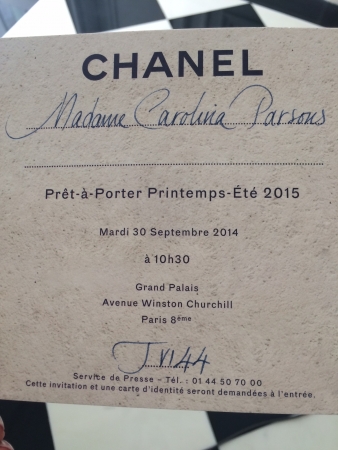 CHANEL
Madame Carolina Parsons
Prêt-à-Porter Printemps-Été 2015
Mardi 30 Septembre 2014
à 10h30
Grand Palais
Avenue Winston Churchill
Paris 8ème
J VI 44
Service de Presse – Tél. : 01 44 50 70 00
Cette invitation et une carte d'identité seront demandées à l'entrée.